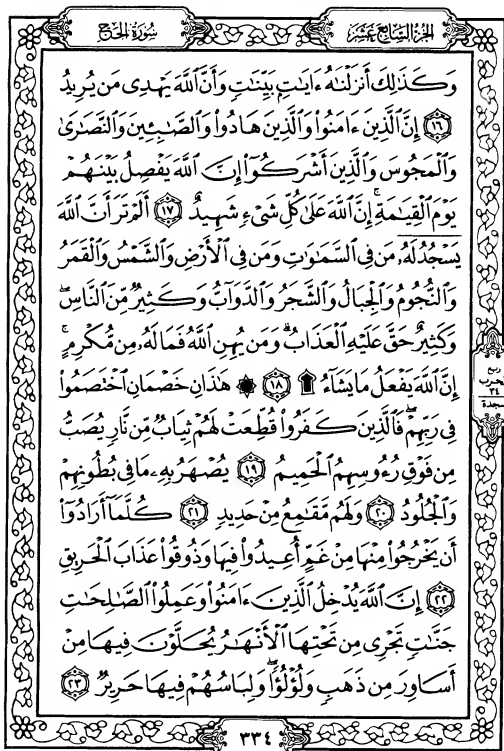 سُورَةُ الحَجّ
الجُزءُ السَّابِعَ عَشَرَ
وَكَذَٰلِكَ أَنزَلْنَٰهُ ءَايَٰتٍۭ بَيِّنَٰتٍ وَأَنَّ ٱللَّهَ يَهْدِى مَن يُرِيدُ
﴿١٦﴾ إِنَّ ٱلَّذِينَ ءَامَنُوا۟ وَٱلَّذِينَ هَادُوا۟ وَٱلصَّٰبِـِٔينَ وَٱلنَّصَٰرَىٰ
وَٱلْمَجُوسَ وَٱلَّذِينَ أَشْرَكُوٓا۟ إِنَّ ٱللَّهَ يَفْصِلُ بَيْنَهُمْ
يَوْمَ ٱلْقِيَٰمَةِ ۚ إِنَّ ٱللَّهَ عَلَىٰ كُلِّ شَىْءٍ شَهِيدٌ ﴿١٧﴾ أَلَمْ تَرَ أَنَّ ٱللَّهَ
يَسْجُدُ لَهُۥ مَن فِى ٱلسَّمَٰوَٰتِ وَمَن فِى ٱلْأَرْضِ وَٱلشَّمْسُ وَٱلْقَمَرُ
وَٱلنُّجُومُ وَٱلْجِبَالُ وَٱلشَّجَرُ وَٱلدَّوَآبُّ وَكَثِيرٌ مِّنَ ٱلنَّاسِ ۖ
وَكَثِيرٌ حَقَّ عَلَيْهِ ٱلْعَذَابُ ۗ وَمَن يُهِنِ ٱللَّهُ فَمَا لَهُۥ مِن مُّكْرِمٍ ۚ
إِنَّ ٱللَّهَ يَفْعَلُ مَا يَشَآءُ ۩ ﴿١٨﴾ ۞ هَٰذَانِ خَصْمَانِ ٱخْتَصَمُوا۟
فِى رَبِّهِمْ ۖ فَٱلَّذِينَ كَفَرُوا۟ قُطِّعَتْ لَهُمْ ثِيَابٌ مِّن نَّارٍ يُصَبُّ
مِن فَوْقِ رُءُوسِهِمُ ٱلْحَمِيمُ ﴿١٩﴾ يُصْهَرُ بِهِۦ مَا فِى بُطُونِهِمْ
وَٱلْجُلُودُ ﴿٢٠﴾ وَلَهُم مَّقَٰمِعُ مِنْ حَدِيدٍ ﴿٢١﴾ كُلَّمَآ أَرَادُوٓا۟
أَن يَخْرُجُوا۟ مِنْهَا مِنْ غَمٍّ أُعِيدُوا۟ فِيهَا وَذُوقُوا۟ عَذَابَ ٱلْحَرِيقِ
﴿٢٢﴾ إِنَّ ٱللَّهَ يُدْخِلُ ٱلَّذِينَ ءَامَنُوا۟ وَعَمِلُوا۟ ٱلصَّٰلِحَٰتِ
جَنَّٰتٍ تَجْرِى مِن تَحْتِهَا ٱلْأَنْهَٰرُ يُحَلَّوْنَ فِيهَا مِنْ
أَسَاوِرَ مِن ذَهَبٍ وَلُؤْلُؤًا ۖ وَلِبَاسُهُمْ فِيهَا حَرِيرٌ ﴿٢٣﴾
ربع
٣٤
سجدة
٣٣٤